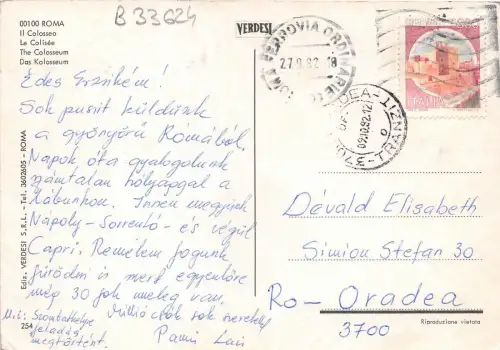 B 33624
00100 ROMA
Il Colosseo
Le Colisée
The Colosseum
Das Kolosseum
VERDESI
FERROVIA ORDINARIE
27.9.82 18
ITALIA
ORADEA-TRANZIT
09.10.82.12
Édes Erzsikém!
Sok puszit küldünk
a gyönyörű Romából.
Napok óta gyalogolunk
számtalan hólyaggal a
lábunkon. Innen megyünk
Nápoly-Sorrentó-és végül
Capri. Remélem fogunk
fürödni is mert egyenlőre
még 30 fok meleg van.
Millió csók sok szeretettel
Pami Laci
U.i: Szombathelyre
feladás
megtörtént.
Dévald Elisabeth
Simion Stefan 30
Ro-Oradea
3700
Ediz. VERDESI S.R.L. - Tel. 3602605 - ROMA
254
Riproduzione vietata